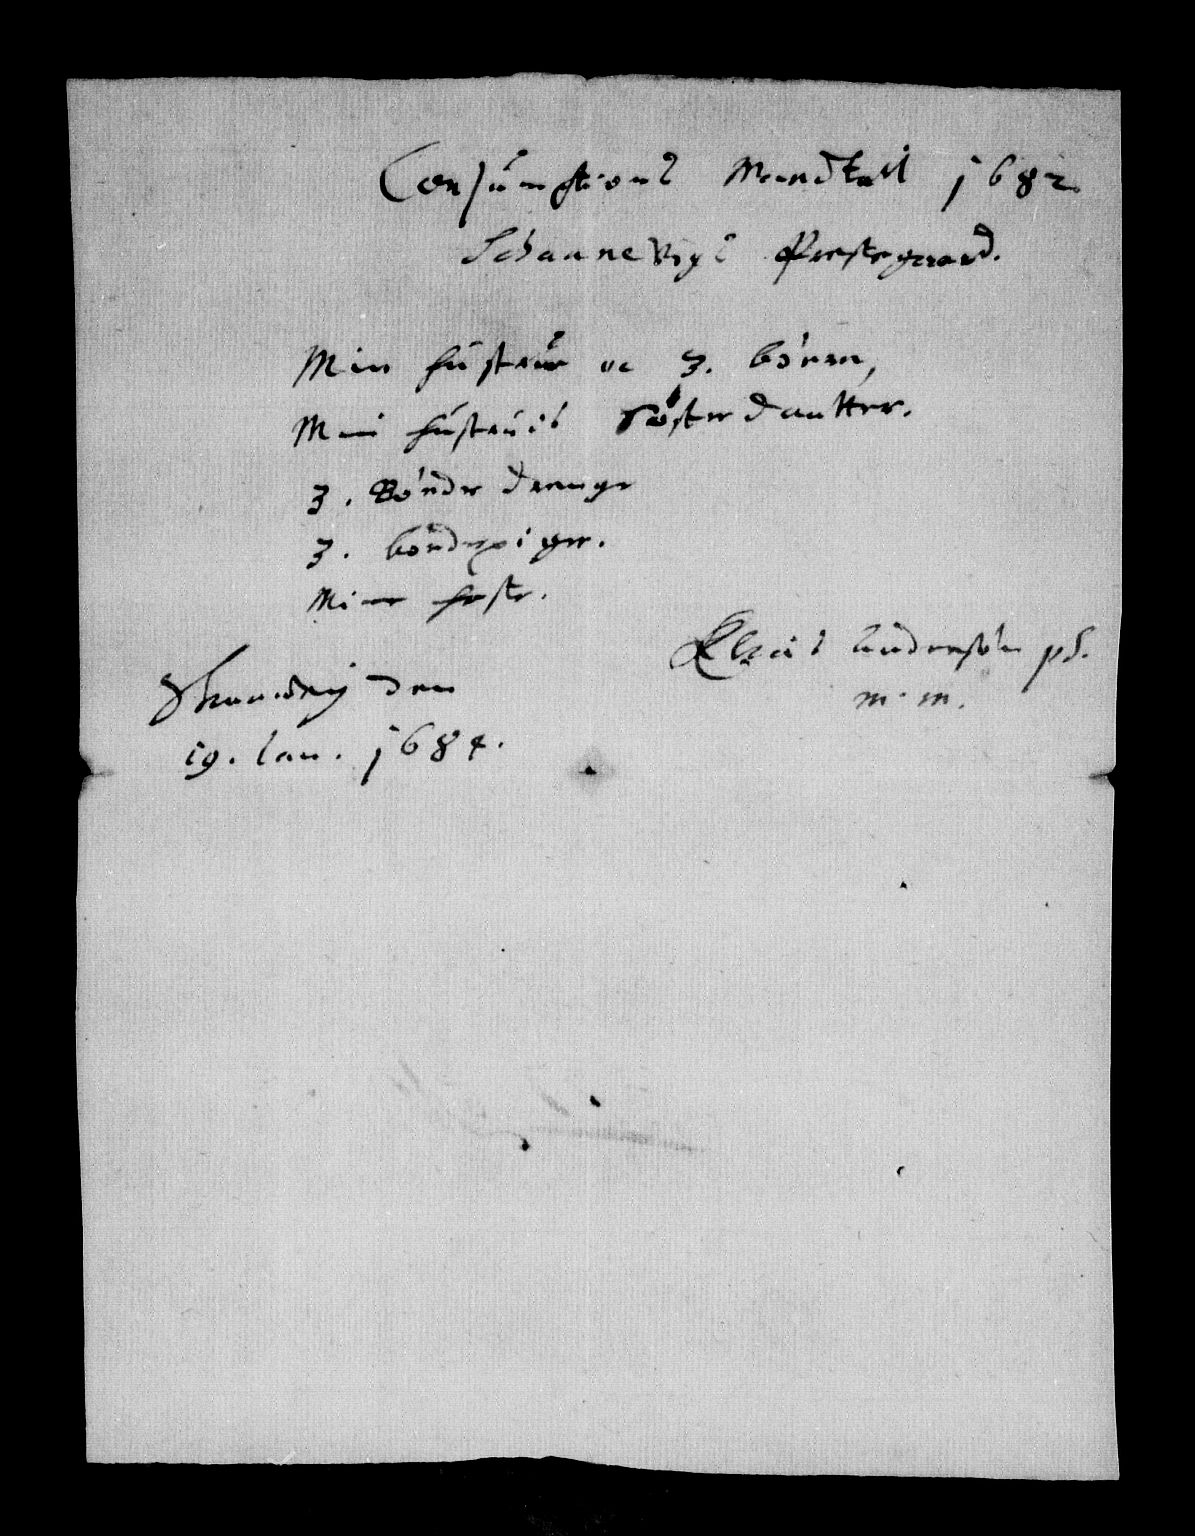 Consumptions Mandtall 1682
Schanevigs Prestegaard.
Min hustrue oc 3. börn,
Min hustruis Söster dautter.
3. Bönder drenge
3. bönder piger.
Mine heste.
Anderssön pS.
m. m.
den
19. Ian. 1684.